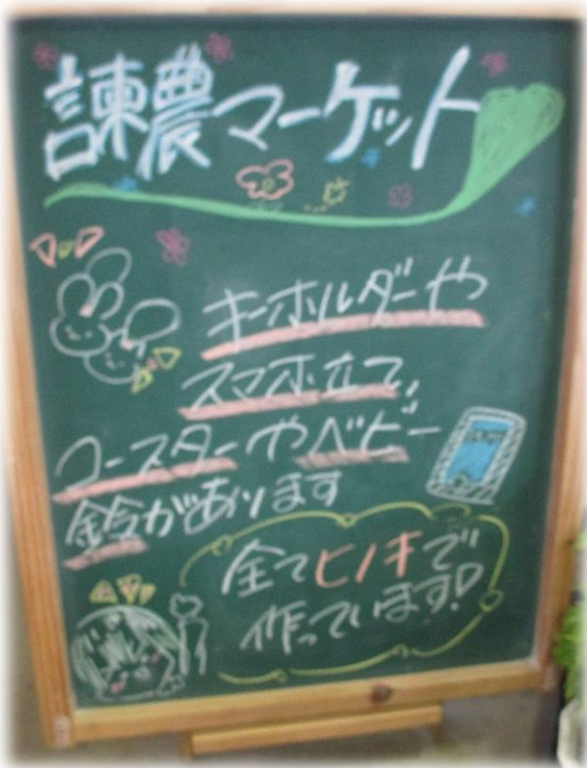 諫農マーケット
キーホルダーや
スマホ立て、
コースターやベビー
鈴があります
全てヒノキで
作っています!